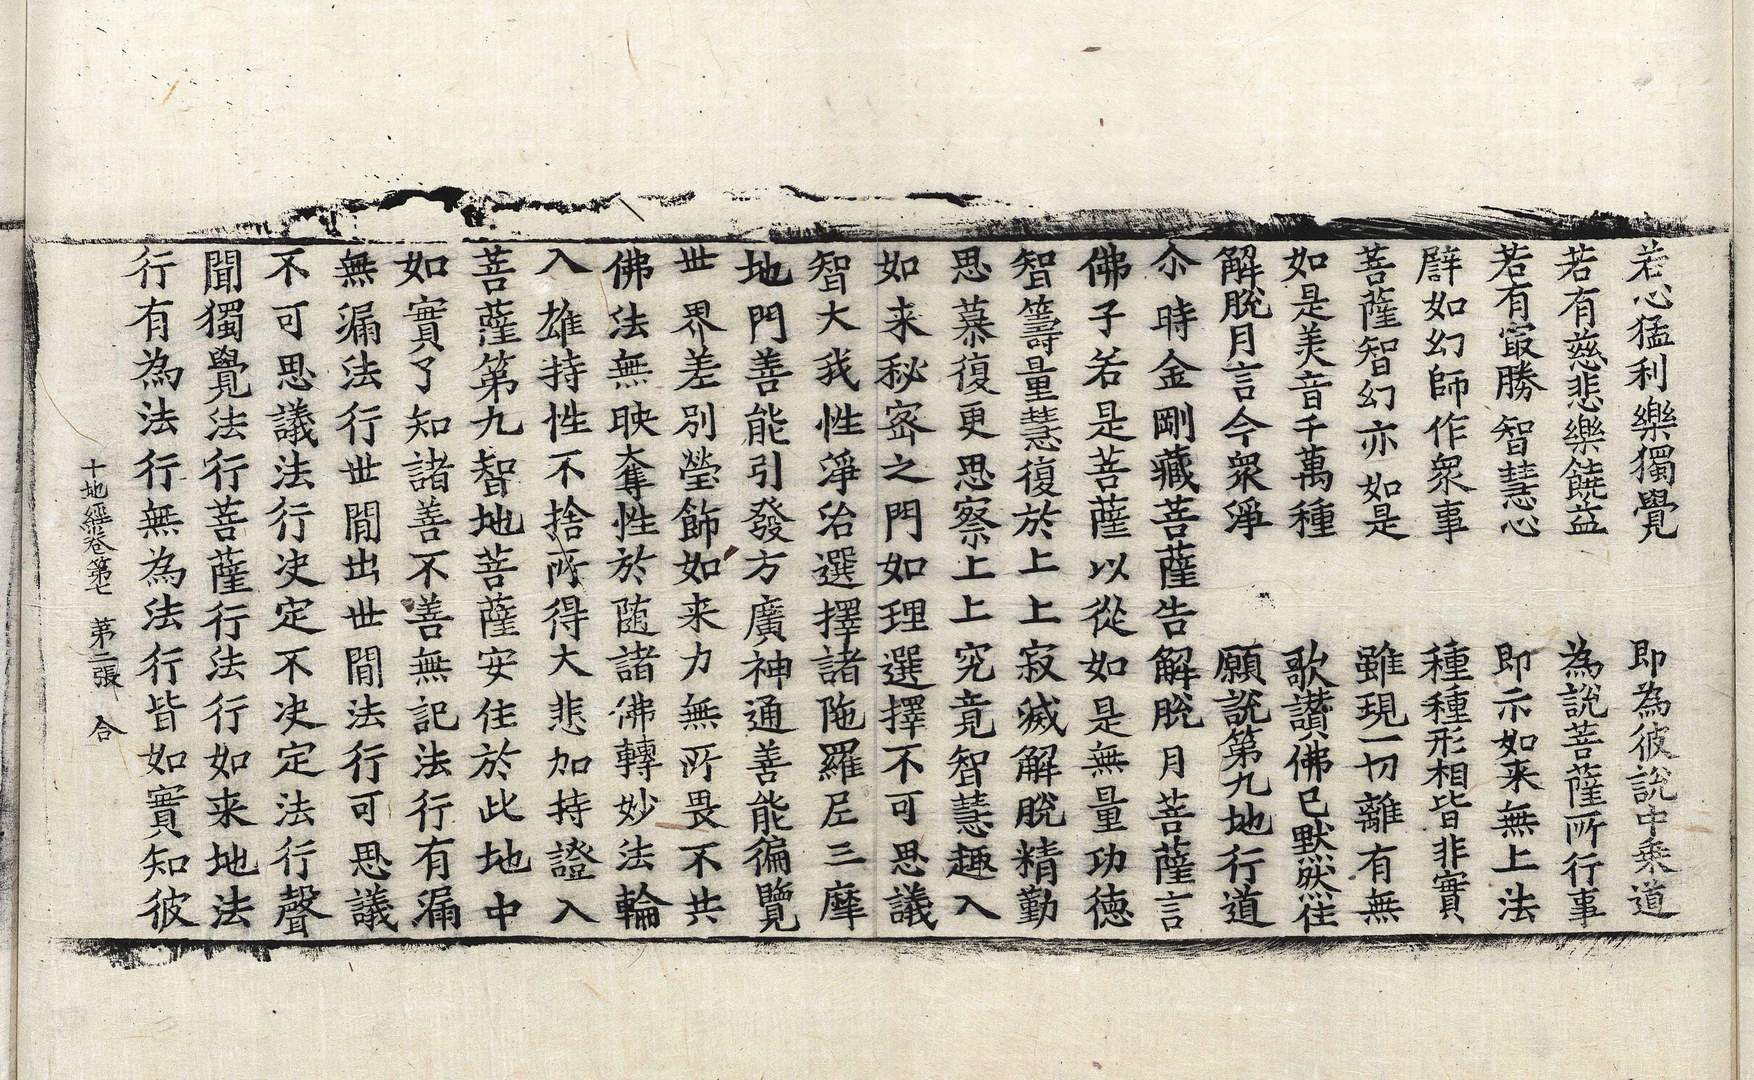 若心猛利樂獨覺　即為彼說中乘道
若有慈悲樂饒益　為說菩薩所行事
若有㝡勝智慧心　即示如來無上法
譬如幻師作衆事　種種形相皆非實
菩薩智幻亦如是　雖現一切離有無
如是美音千萬種　歌讚佛已默然住
解脫月言今衆淨　願說第九地行道
尒時金剛藏菩薩告解脫月菩薩言
佛子若是菩薩以從如是無量功德
智籌量慧復於上上寂滅解脫精勤
思慕復更思察上上究竟智慧趣入
如来秘密之門如理選擇不可思議
智大我性淨治選擇諸陁羅尼三摩
地門善能引發方廣神通善能徧覽
世界差別瑩飾如来力無所畏不共
佛法無映奪性於随諸佛轉妙法輪
入雄持性不捨所得大悲加持證入
菩薩第九智地菩薩安住於此地中
如實了知諸善不善無記法行有漏
無漏法行世間出世間法行可思議
不可思議法行决定不决定法行聲
聞獨覺法行菩薩行法行如来地法
行有為法行無為法行皆如實知彼
十地經卷第七　第二張　合